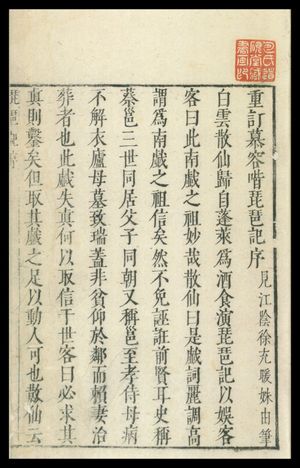 重訂慕容喈琵琶記序 見江陰徐充暖姝由筆
白雲散仙歸自蓬萊爲酒食演琵琶記以娛
客曰此南戲之祖妙哉散仙曰是戲詞麗調高
謂爲南戲之祖信矣然不免誣誑前賢耳史稱
蔡邕三世同居父子同朝又稱邕至孝侍母病
不解衣廬母墓致瑞蓋非貧仰於鄰而賴妻治
葬者也此戲失真何以取信于世客曰必求其
真則鑿矣但取其戲之足以動人可也散仙云